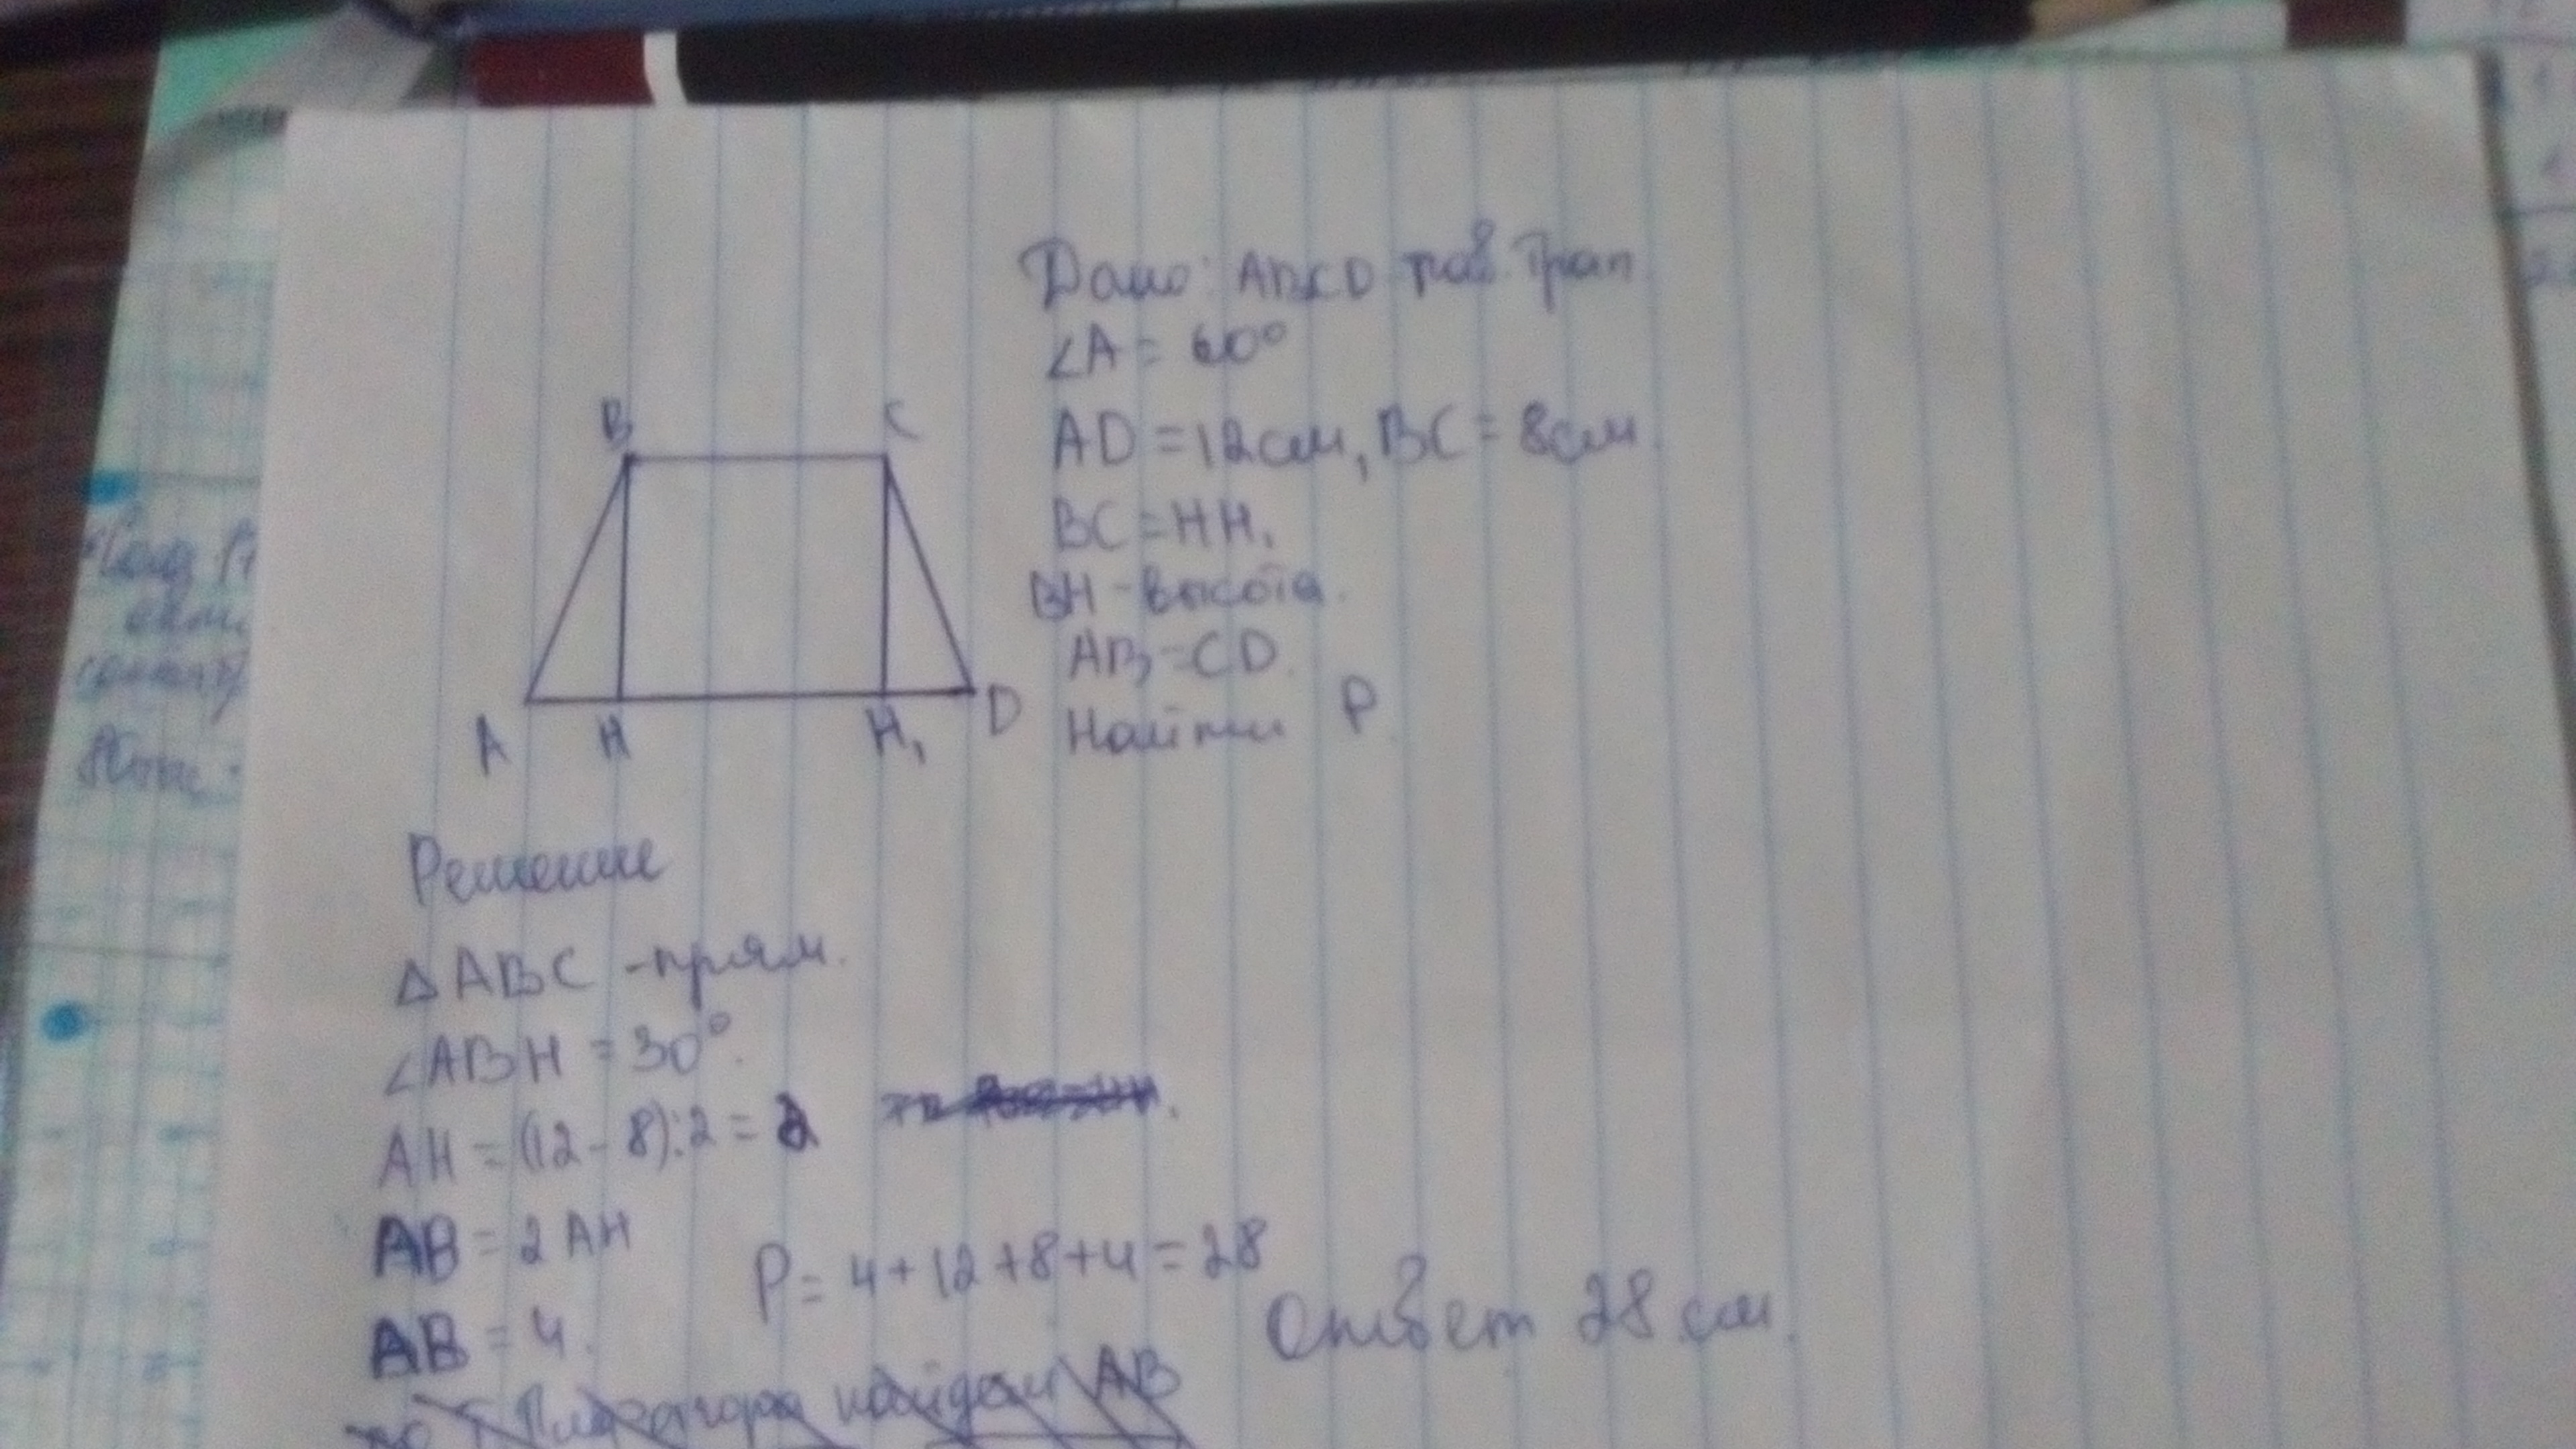 Дано: ABCD рав. трап
∠A = 60°
AD = 12 см, BC = 8 см
BC = HH₁
BH - высота.
AB = CD.
Найти P
B C
A H H₁ D
Решение
△ABC - прям.
∠ABH = 30°.
AH = (12 - 8):2 = 2
AB = 2AH
AB = 4.
P = 4 + 12 + 8 + 4 = 28
Ответ 28 см.
Пифагора найдем AB